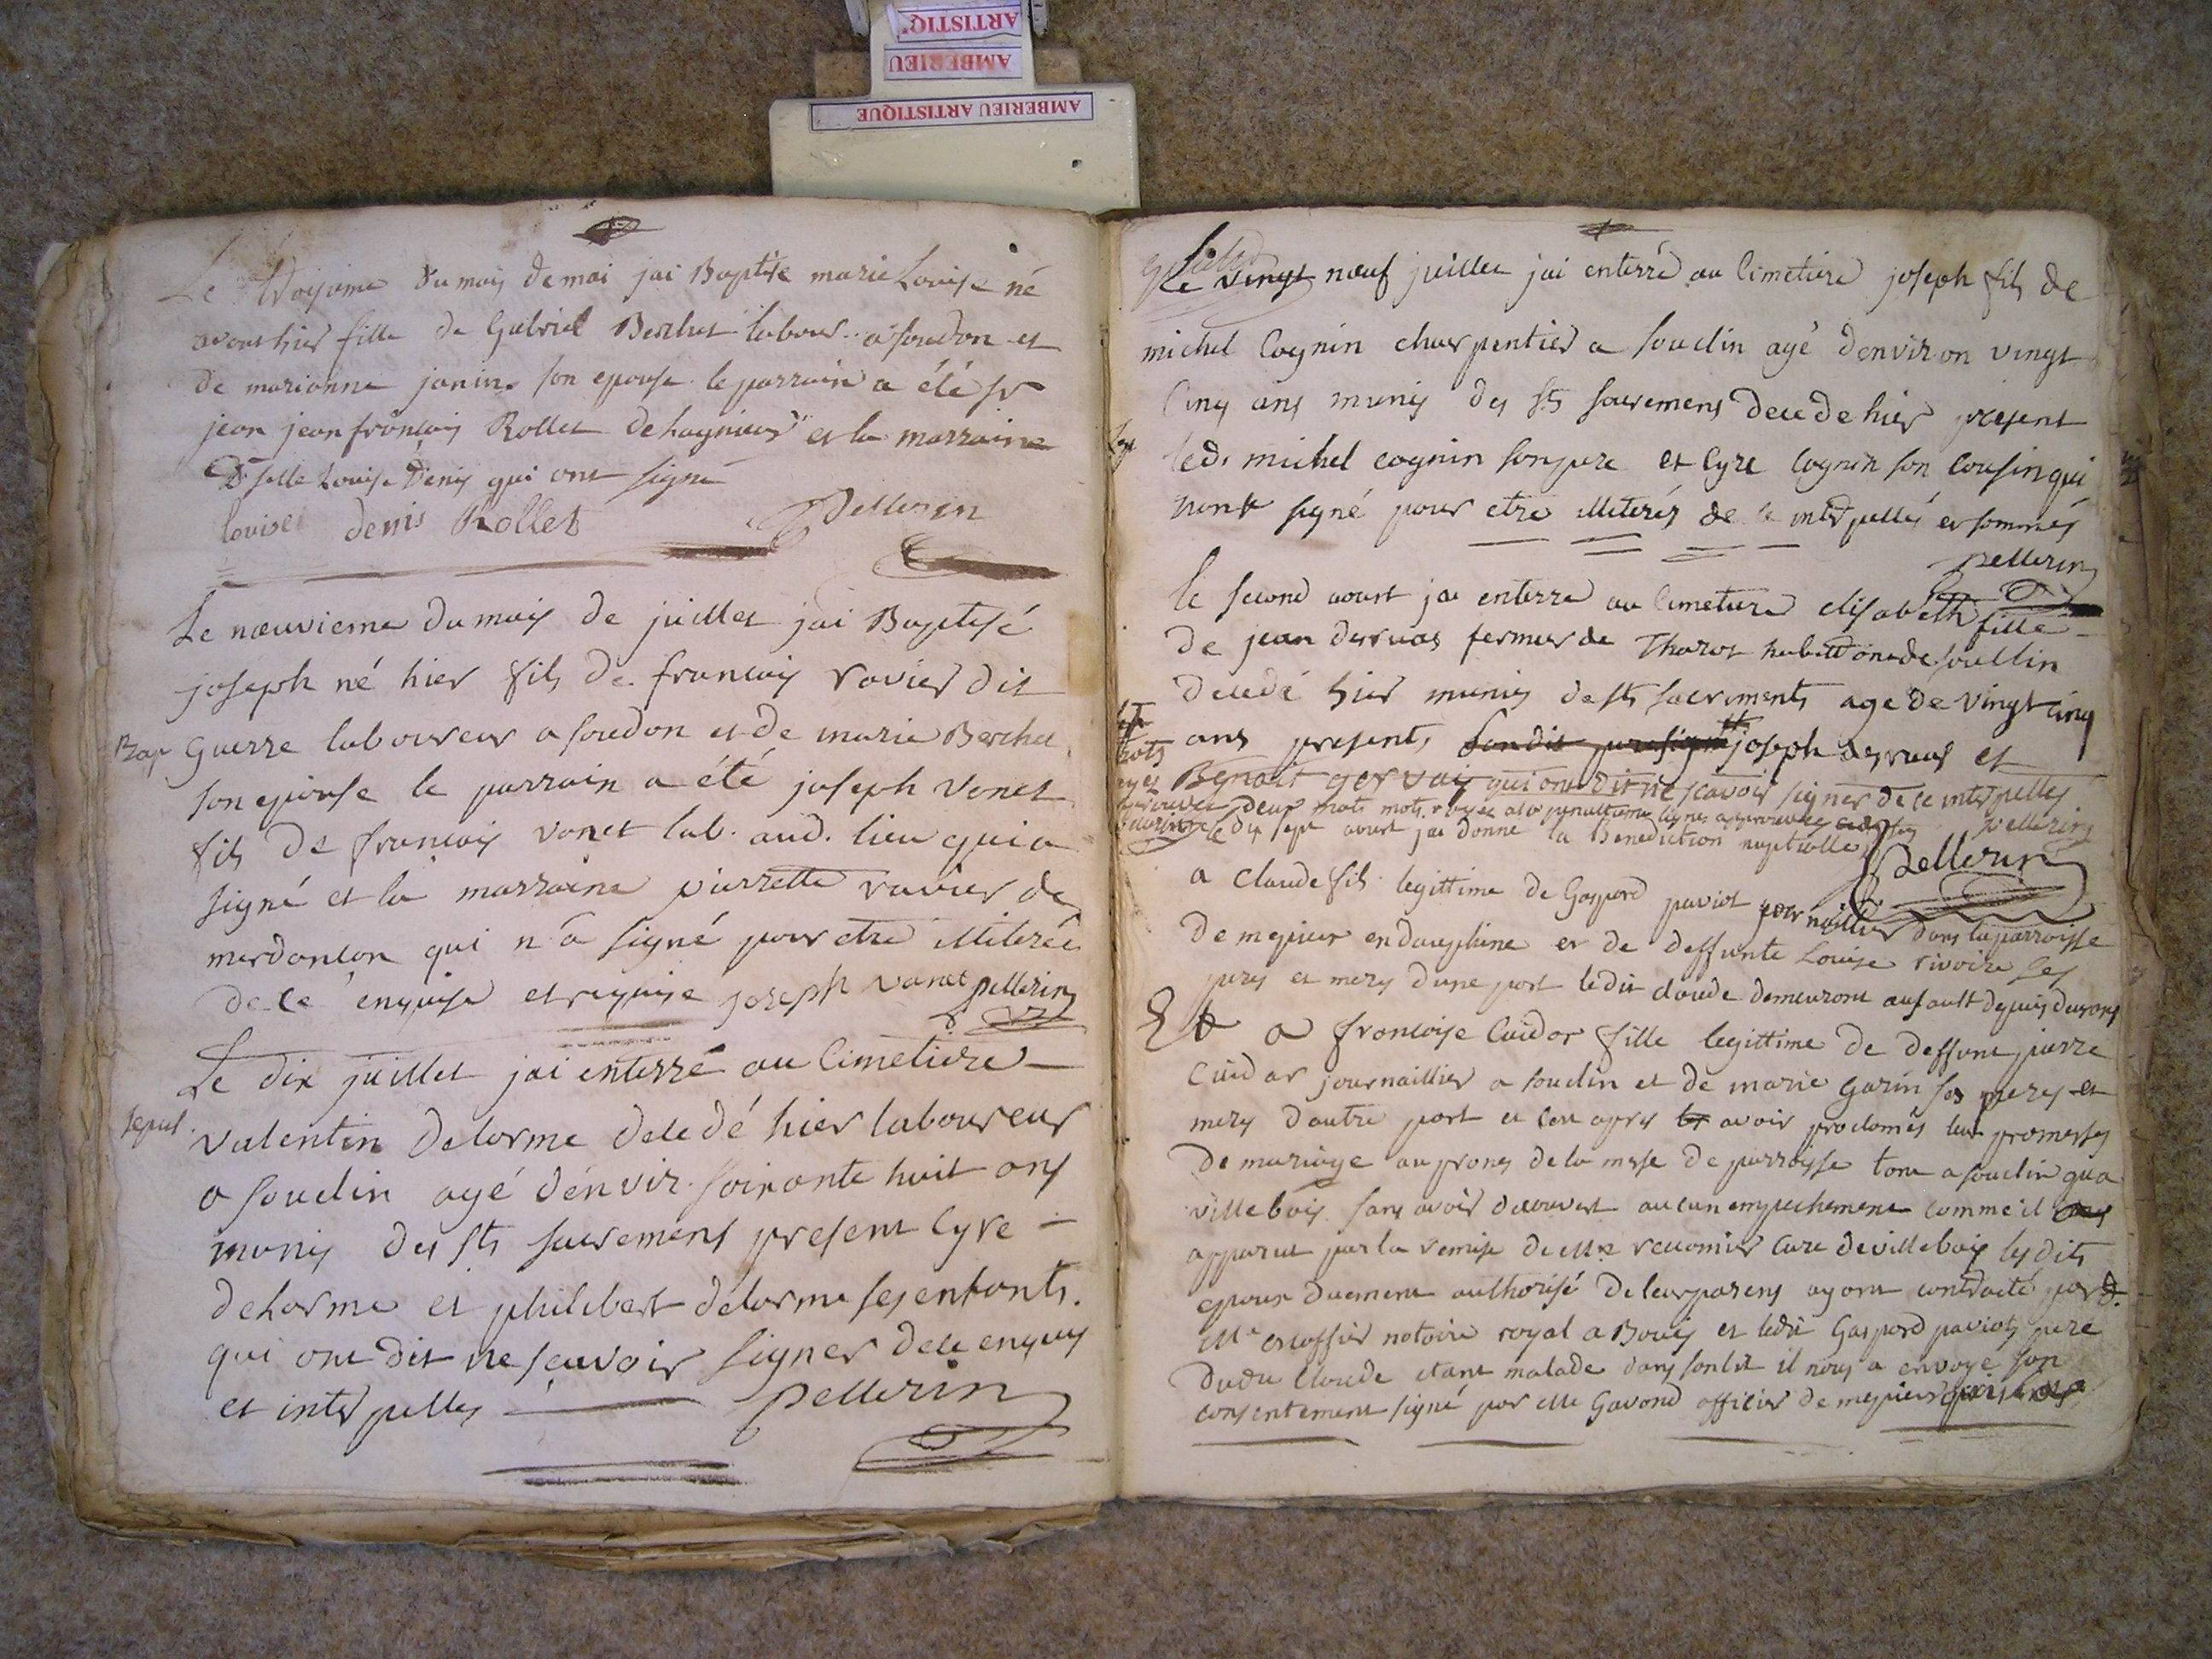 ARTISTIQ
AMBERIEU
AMBERIEU ARTISTIQUE
Le troisieme du mois de mai jai Baptisé marie Louise né
avant hier fille de Gabriel Berchet labour. a soudon et
de marianne janin son epouse le parrain a été sr
jean jean francois Rollet de lagnieu et la marraine
Dselle Louise Denis qui ont signé
louise denis Rollet Pellerin
Le nœuvieme du mois de juillet jai Baptisé
joseph né hier fils de francois ravier dit
Bap Guerre laboureur a soudon et de marie Berchet
son epouse le parrain a été joseph vanet
fils de francois vanet lab. aud. lieu qui a
signé et la marraine pierrette ravier de
merdanson qui n'a signé pour etre illiterée
de ce enquise et requise joseph vanet pellerin
Le dix juillet jai enterré au Cimetiere
sepul. valentin delorme decedé hier laboureur
a souclin agé d'envir. soixante huit ans
munis des sts sacremens present Cyre
delorme et philibert delorme ses enfants.
qui ont dit ne scavoir signer de ce enquis
et interpellés pellerin
Le vingt nœuf juillet jai enterré au Cimetiere joseph fils de
michel Cognin charpentier a souclin agé d'environ vingt
Cinq ans munis des sts sacremens decedé hier present
led. michel cognin son pere et Cyre Cognin son cousin qui
n'ont signé pour etre illiterés de ce interpellés et sommés
pellerin
le second aoust jai enterré au Cimetiere elisabeth fille
de jean derruas fermier de Tharot de souclin
decedé hier munis de sts sacrements agé de vingt cinq
ans presents joseph derruas et
Benoit gervais qui ont dit ne scavoir signer de ce interpellés
deux mots rayés a la penultieme lignes pellerin
le dix sept aoust jai donné la Benediction nuptialle
Pellerin
a Claude fils legittime de Gaspard paviot journaillier dans la parroisse
de mepieu en dauphine et de deffunte Louise rivoire ses
peres et meres d'une part ledit claude demeurant au sault depuis deux ans
Et a francoise Cuidar fille legittime de deffunt pierre
Cuidar journaillier a souclin et de marie garin ses peres et
meres d'autre part et ceu apres avoir proclamés leur promesses
de mariage au prones de la messe de parroisse tant a souclin qua
villebois sans avoir decouvert aucun empechement comme il
apparut par la remise de Mre Curé de villebois les dits
epoux duement authorisé de leur parens ayant contracté par d.
Me notaire royal a Bouis et ledit Gaspard paviot pere
dudit Claude etant malade dans son lit il nous a envoyé son
consentement signé par Me Gavand officier de mepieu